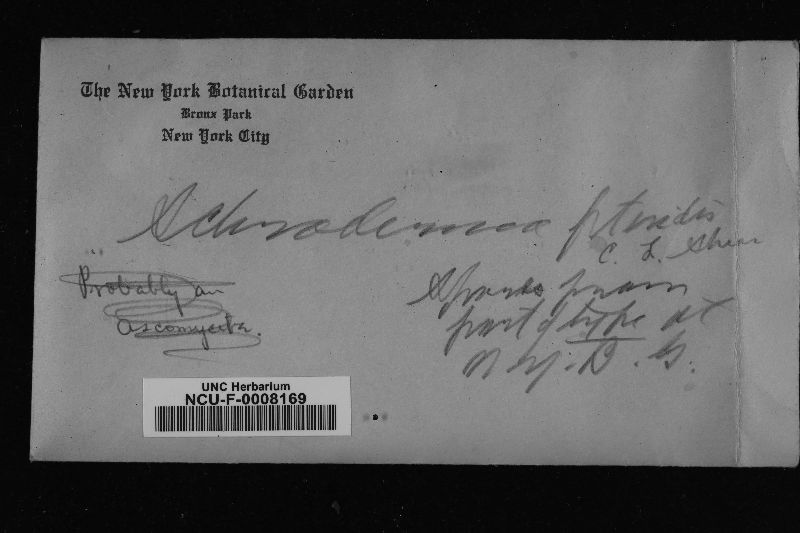 The New York Botanical Garden
Bronx Park
New York City
Scleroderma pteridis
C. L. Shear
Spores from
part of type at
N.Y.B.G.
Probably an
ascomycete.
UNC Herbarium
NCU-F-0008169